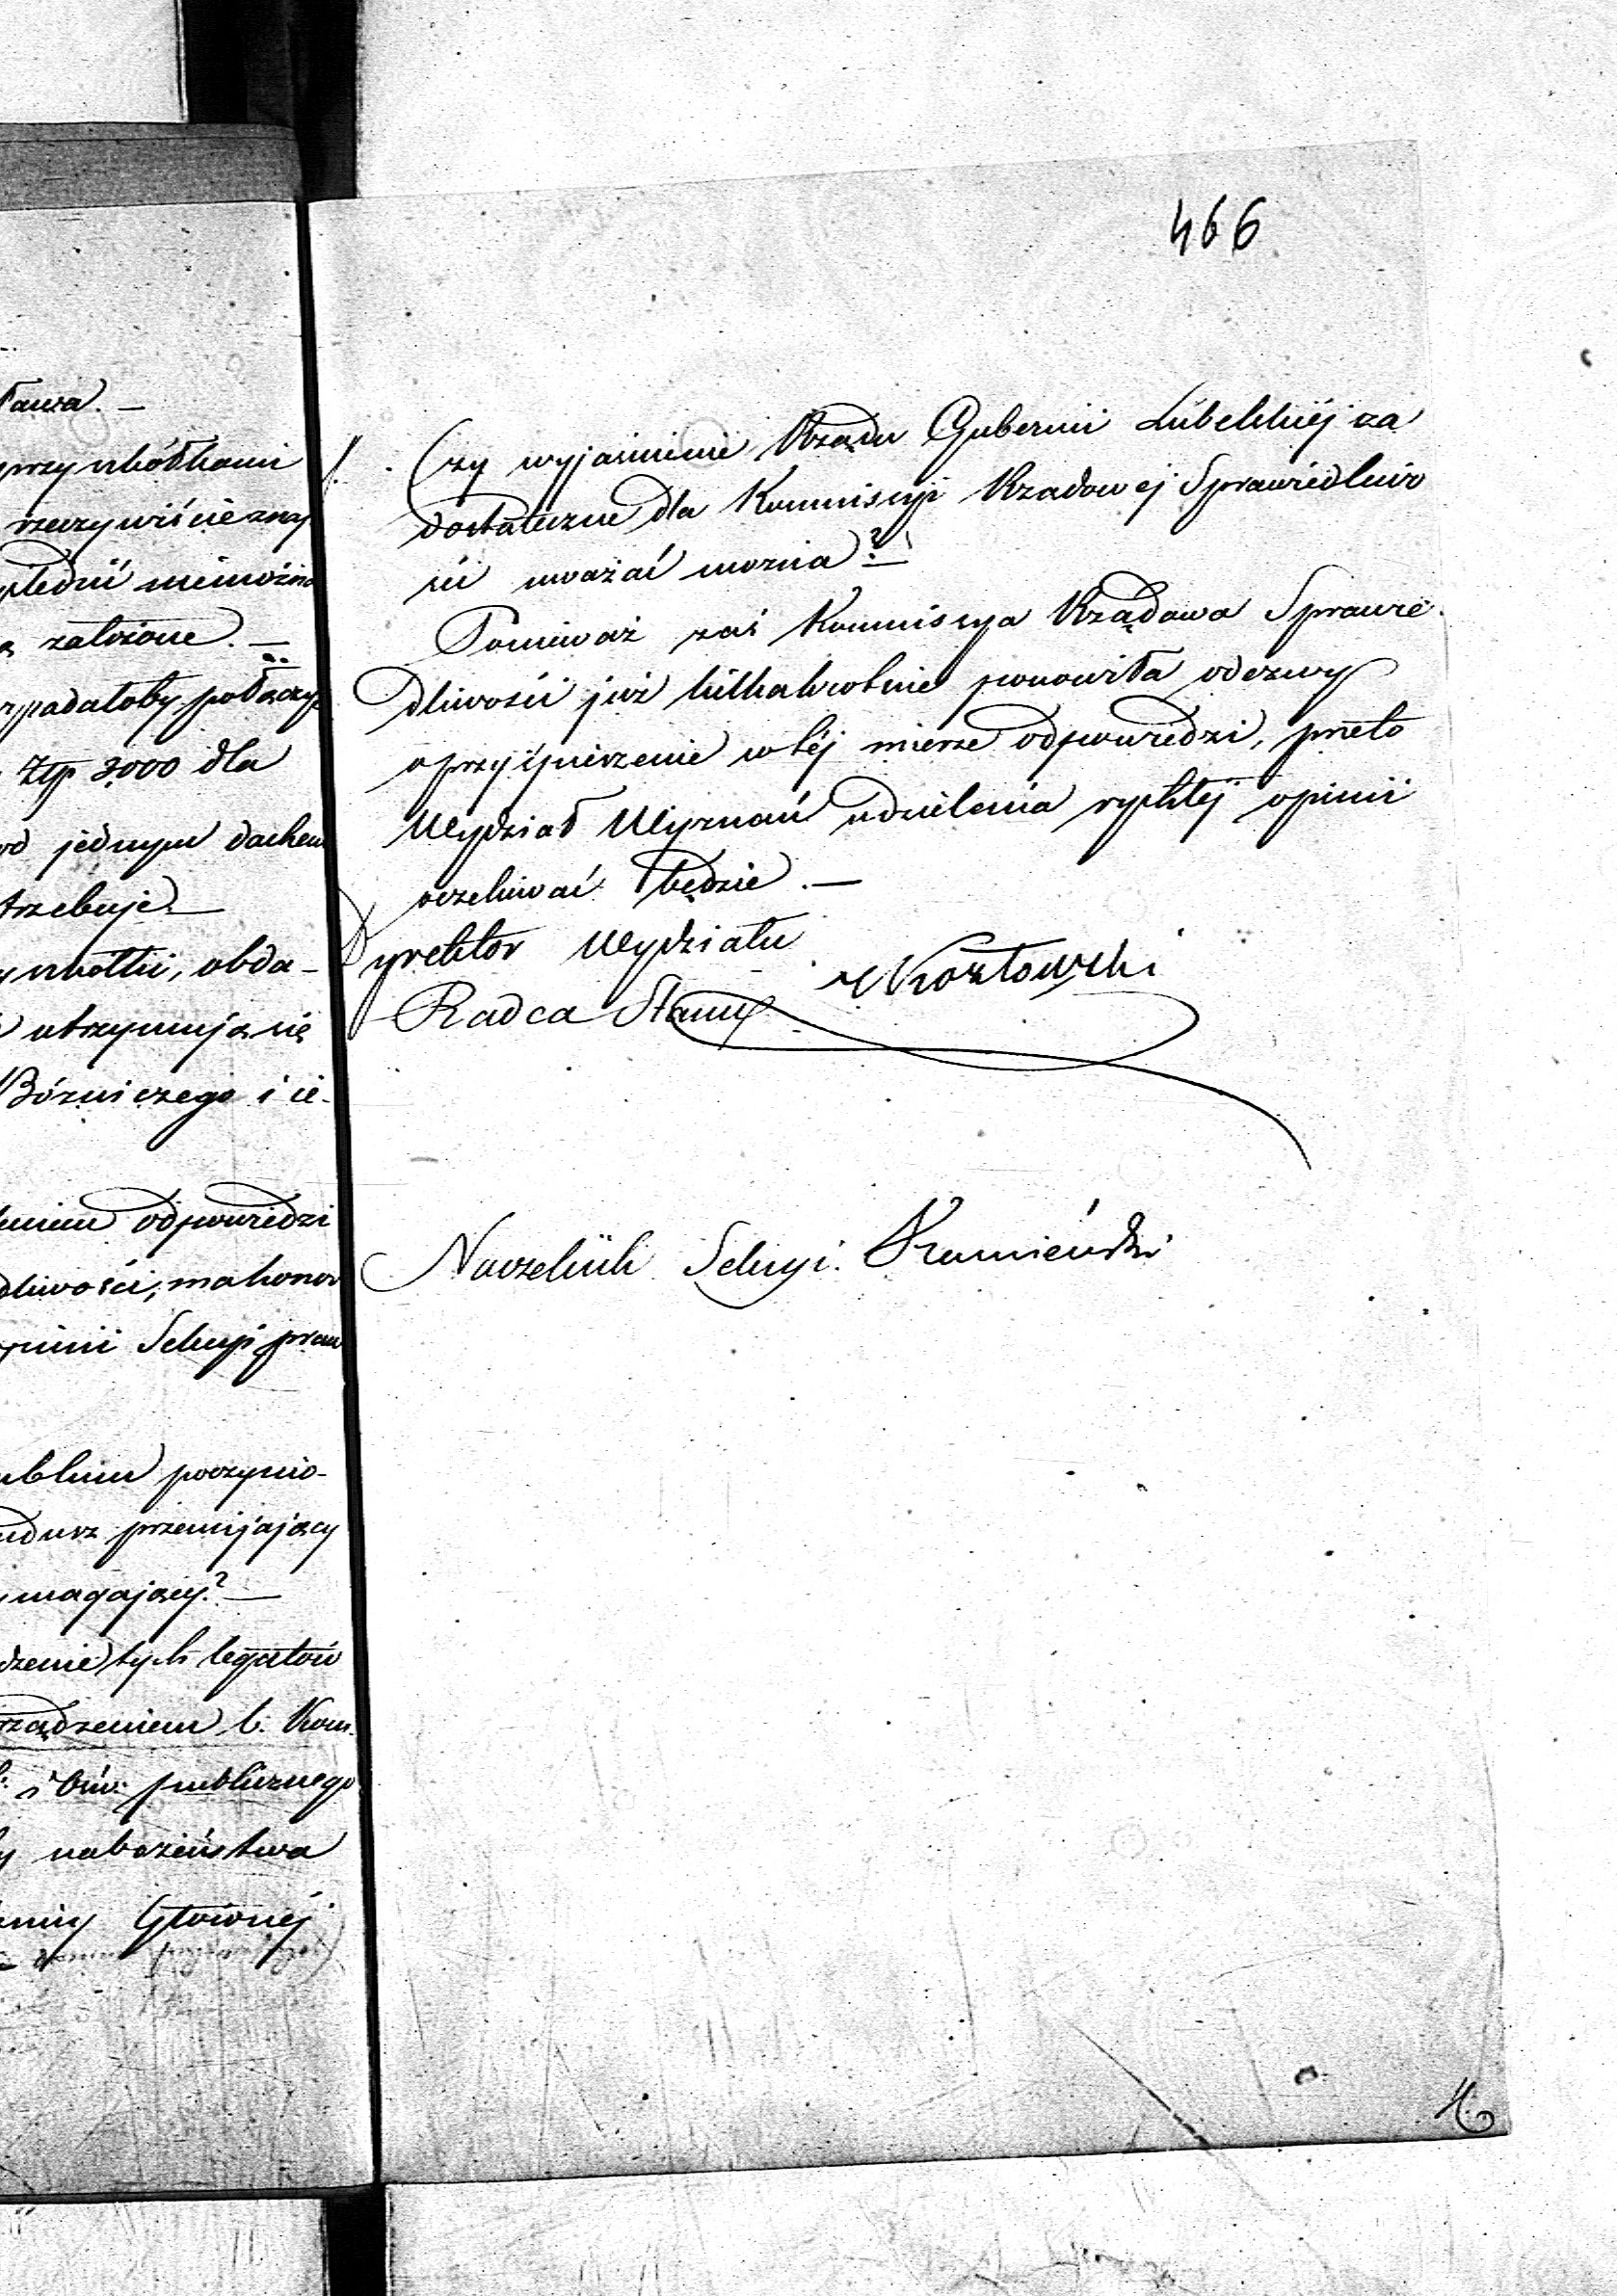 466
tawa. —
przy szkółkami
rzeczywiście
niemożna
założone. —
padałoby połączy
Złp 3000 dla
jednym dachem
trzebuje —
obda-
utrzymują się
Bóżniczego i ie-
odpowiedzi
dliwości, ma honor
pinii Sekcyi praw
poczynio-
dusz przemijający
magający? —
dzenie tych legatów
rządzeniem b. Kom.
i Ośw: publicznego
nabożeństwa
Głównéj
Czy wyjaśnienie Rządu Gubernii Lubelskiéj za
dostateczne dla Kommisyi Rządowej Sprawiedliwo
ści uważać można? —
Ponieważ zaś Kommisya Rządowa Sprawie
dliwości już kilkakrotnie ponowiła odezwy
o przyśpieszenie w téj mierze odpowiedzi, przeto
Wydział Wyznań udzielenia rychłéj opinii
oczekiwać będzie. —
Dyrektor Wydziału
Radca Stanu Kozłowski
Naczelnik Sekcyi. Kamieński